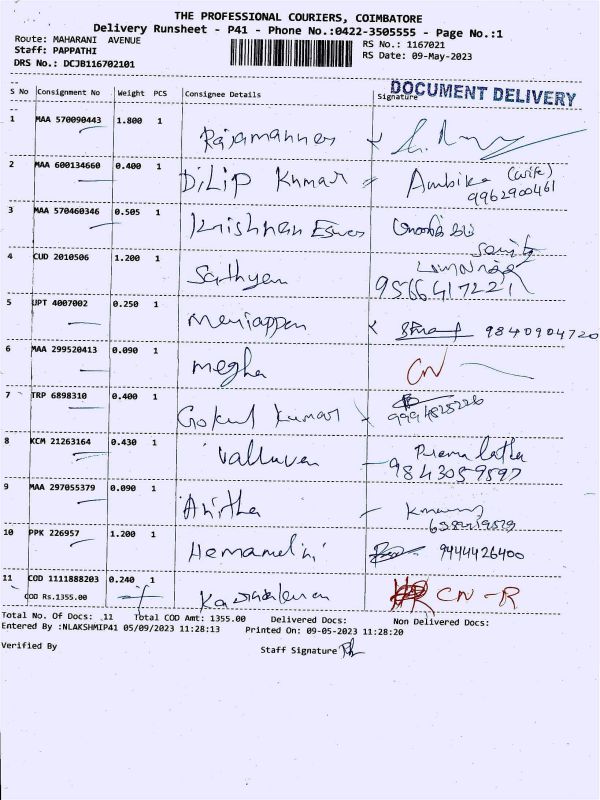 THE PROFESSIONAL COURIERS, COIMBATORE
Delivery Runsheet - P41 - Phone No.:0422-3505555 - Page No.:1
Route: MAHARANI AVENUE RS No.: 1167021
Staff: PAPPATHI RS Date: 09-May-2023
DRS No.: DCJB116702101
DOCUMENT DELIVERY
S No Consignment No Weight PCS Consignee Details Signature
1 MAA 570090443 1.800 1
2 MAA 600134660 0.400 1 Dilip Kumar Ambika (wife)
9962900461
3 MAA 570460346 0.505 1 Krishnan
4 CUD 2010506 1.200 1 Sathyan
9566417221
5 UPT 4007002 0.250 1 Meriappan 9840904720
6 MAA 299520413 0.090 1 Megha CN
7 TRP 6898310 0.400 1 Gokul Kumar
8 KCM 21263164 0.430 1 Valluvan Prema latha
9843059597
9 MAA 297055379 0.090 1
10 PPK 226957 1.200 1 9444426400
11 COD 1111888203 0.240 1 CN-R
COD Rs.1355.00
Total No. Of Docs: 11 Total COD Amt: 1355.00 Delivered Docs: Non Delivered Docs:
Entered By :NLAKSHMIP41 05/09/2023 11:28:13 Printed On: 09-05-2023 11:28:20
Verified By Staff Signature